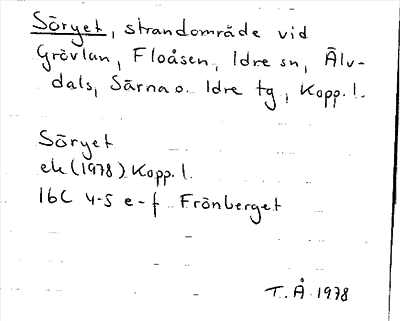 Söryet, strandområde vid
Grövlan, Floåsen, Idre sn, Älv-
dals, Särna o. Idre tg, Kopp. l.
Söryet
ek (1978) Kopp. l.
16C 4-5 e-f Frönberget
T. Å 1978